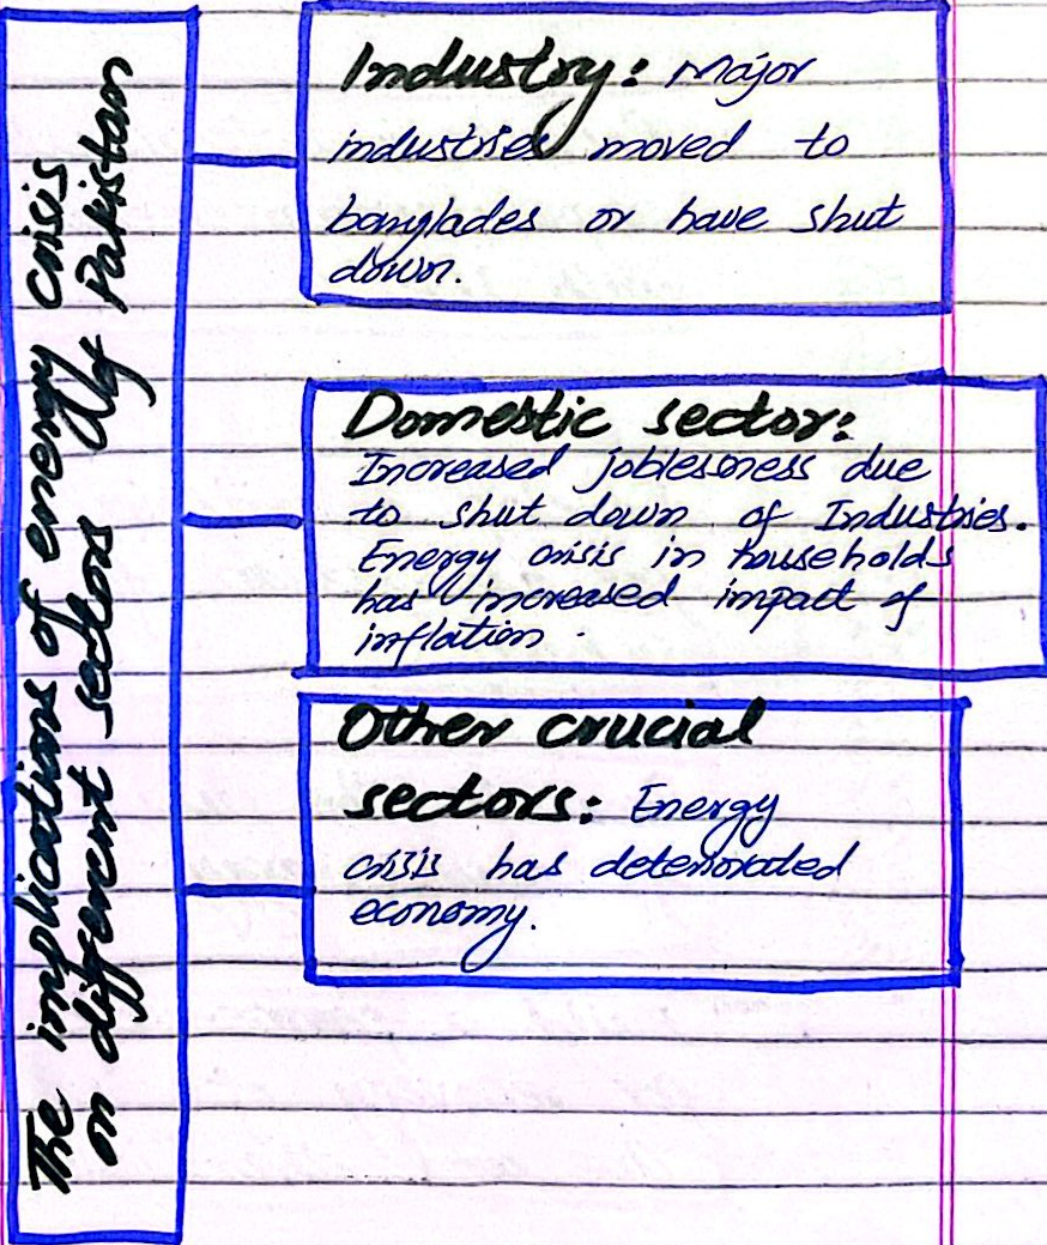 The implications of energy crisis
on different sectors of Pakistan
Industry: Major
industries moved to
banglades or have shut
down.
Domestic sector:
Increased joblesness due
to shut down of Industries.
Energy crisis in households
has increased impact of
inflation.
Other crucial
sectors: Energy
crisis has deteriorated
economy.